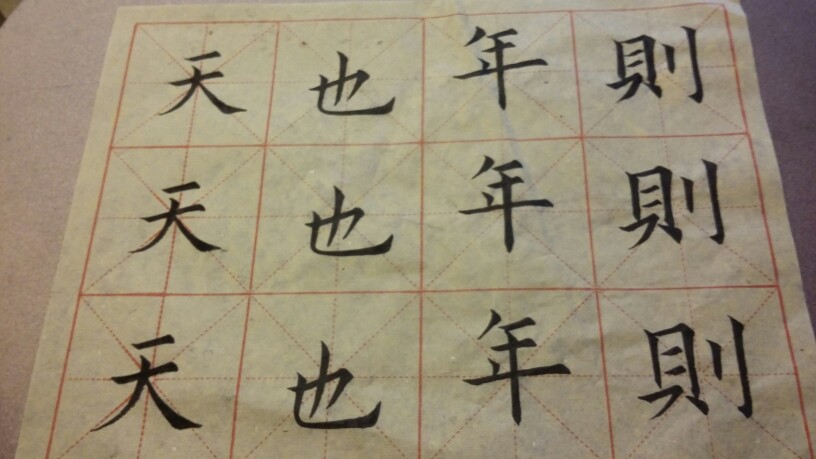 天也年則
天也年則
天也年則